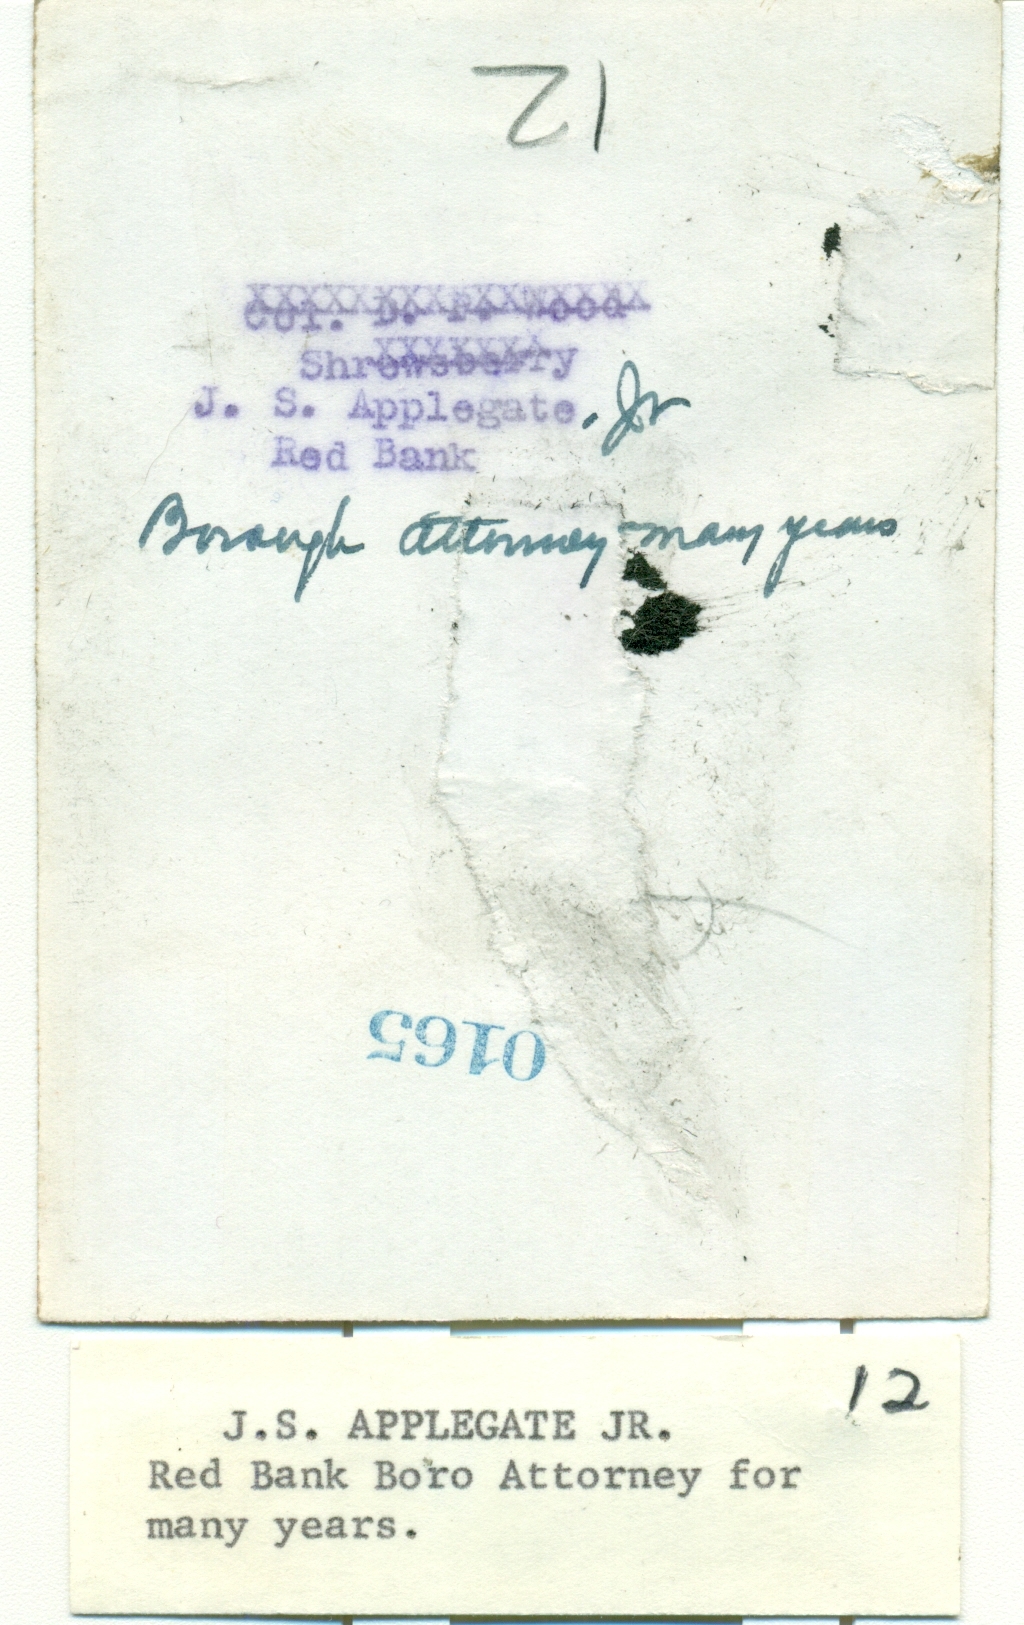 12
Col. D. F. Wood
Shrewsberry
J. S. Applegate, Jr
Red Bank
Borough Attorney - many years
0165
12
J.S. APPLEGATE JR.
Red Bank Boro Attorney for
many years.